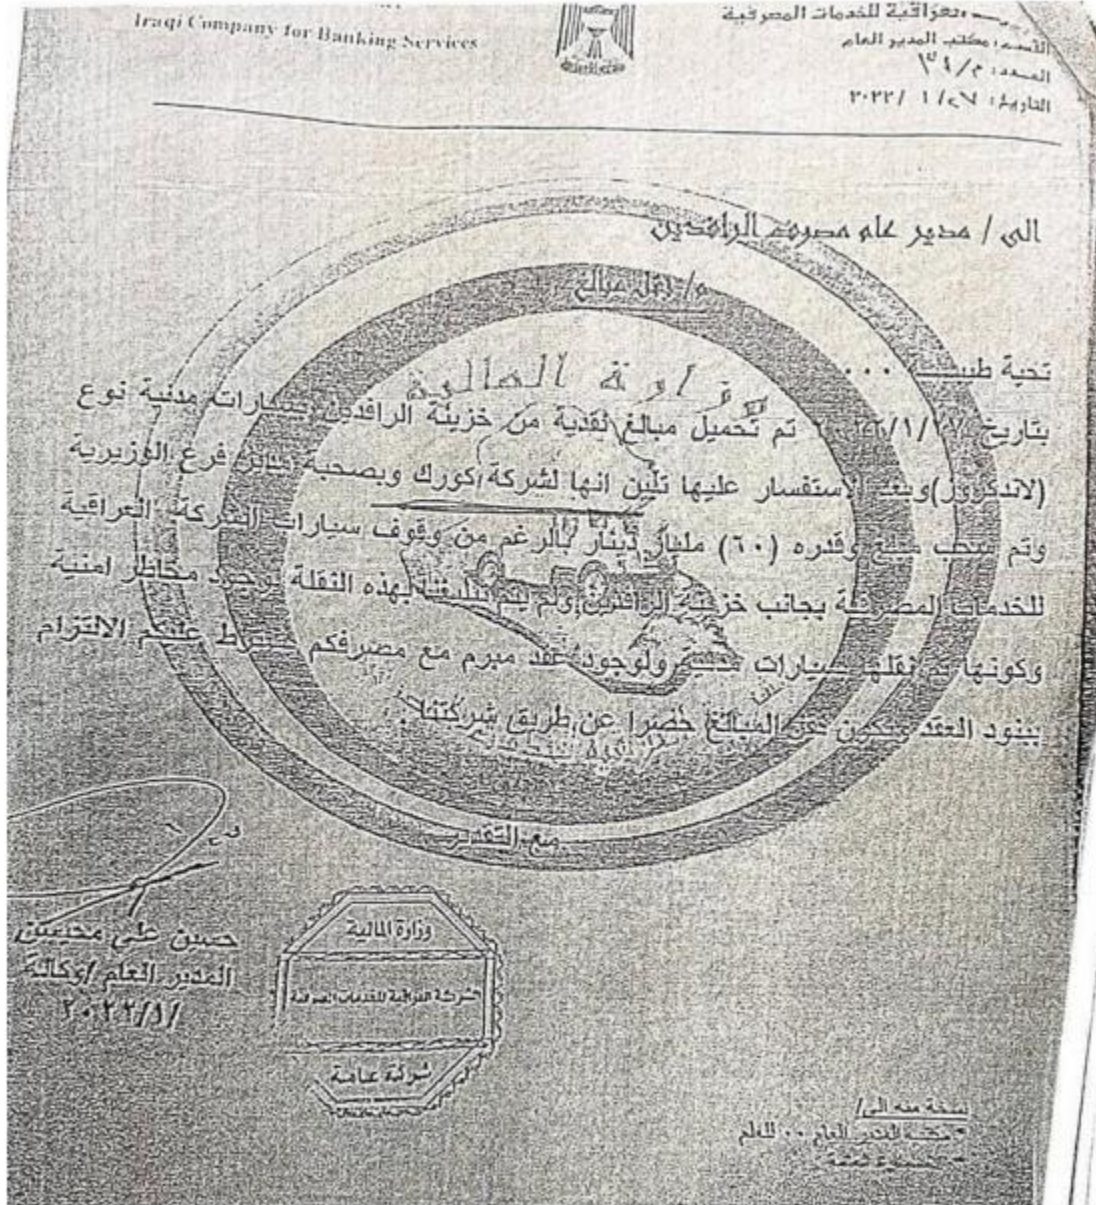 Iraqi Company for Banking Services
العراقية للخدمات المصرفية
القسم: مكتب المدير العام
العدد: م/
التاريخ: ٢٠٢٢/ ١ /٢٧
الى / مدير عام مصرف الرافدين
م/ نقل مبالغ
تحية طيبة ...
وزارة المالية
بتاريخ ٢٠٢٢/١/٢٧ تم تحميل مبالغ نقدية من خزينة الرافدين بسيارات مدنية نوع
(لاندكروز) وبعد الاستفسار عليها تبين انها لشركة كورك وبصحبة مدير فرع الوزيرية
وتم سحب مبلغ وقدره (٦٠) مليار دينار بالرغم من وقوف سيارات الشركة العراقية
للخدمات المصرفية بجانب خزينة الرافدين ولم يتم تبليغنا بهذه النقلة لوجود مخاطر امنية
وكونها تم نقلها بسيارات مدنية ولوجود عقد مبرم مع مصرفكم يشترط عليكم الالتزام
ببنود العقد وتكون نقل المبالغ حصرا عن طريق شركتنا .
مع التقدير
حسين علي محيسن
المدير العام /وكالة
٢٠٢٢/١/
وزارة المالية
الشركة العراقية للخدمات المصرفية
شركة عامة
نسخة منه الى/
- مكتب المدير العام .. للعلم